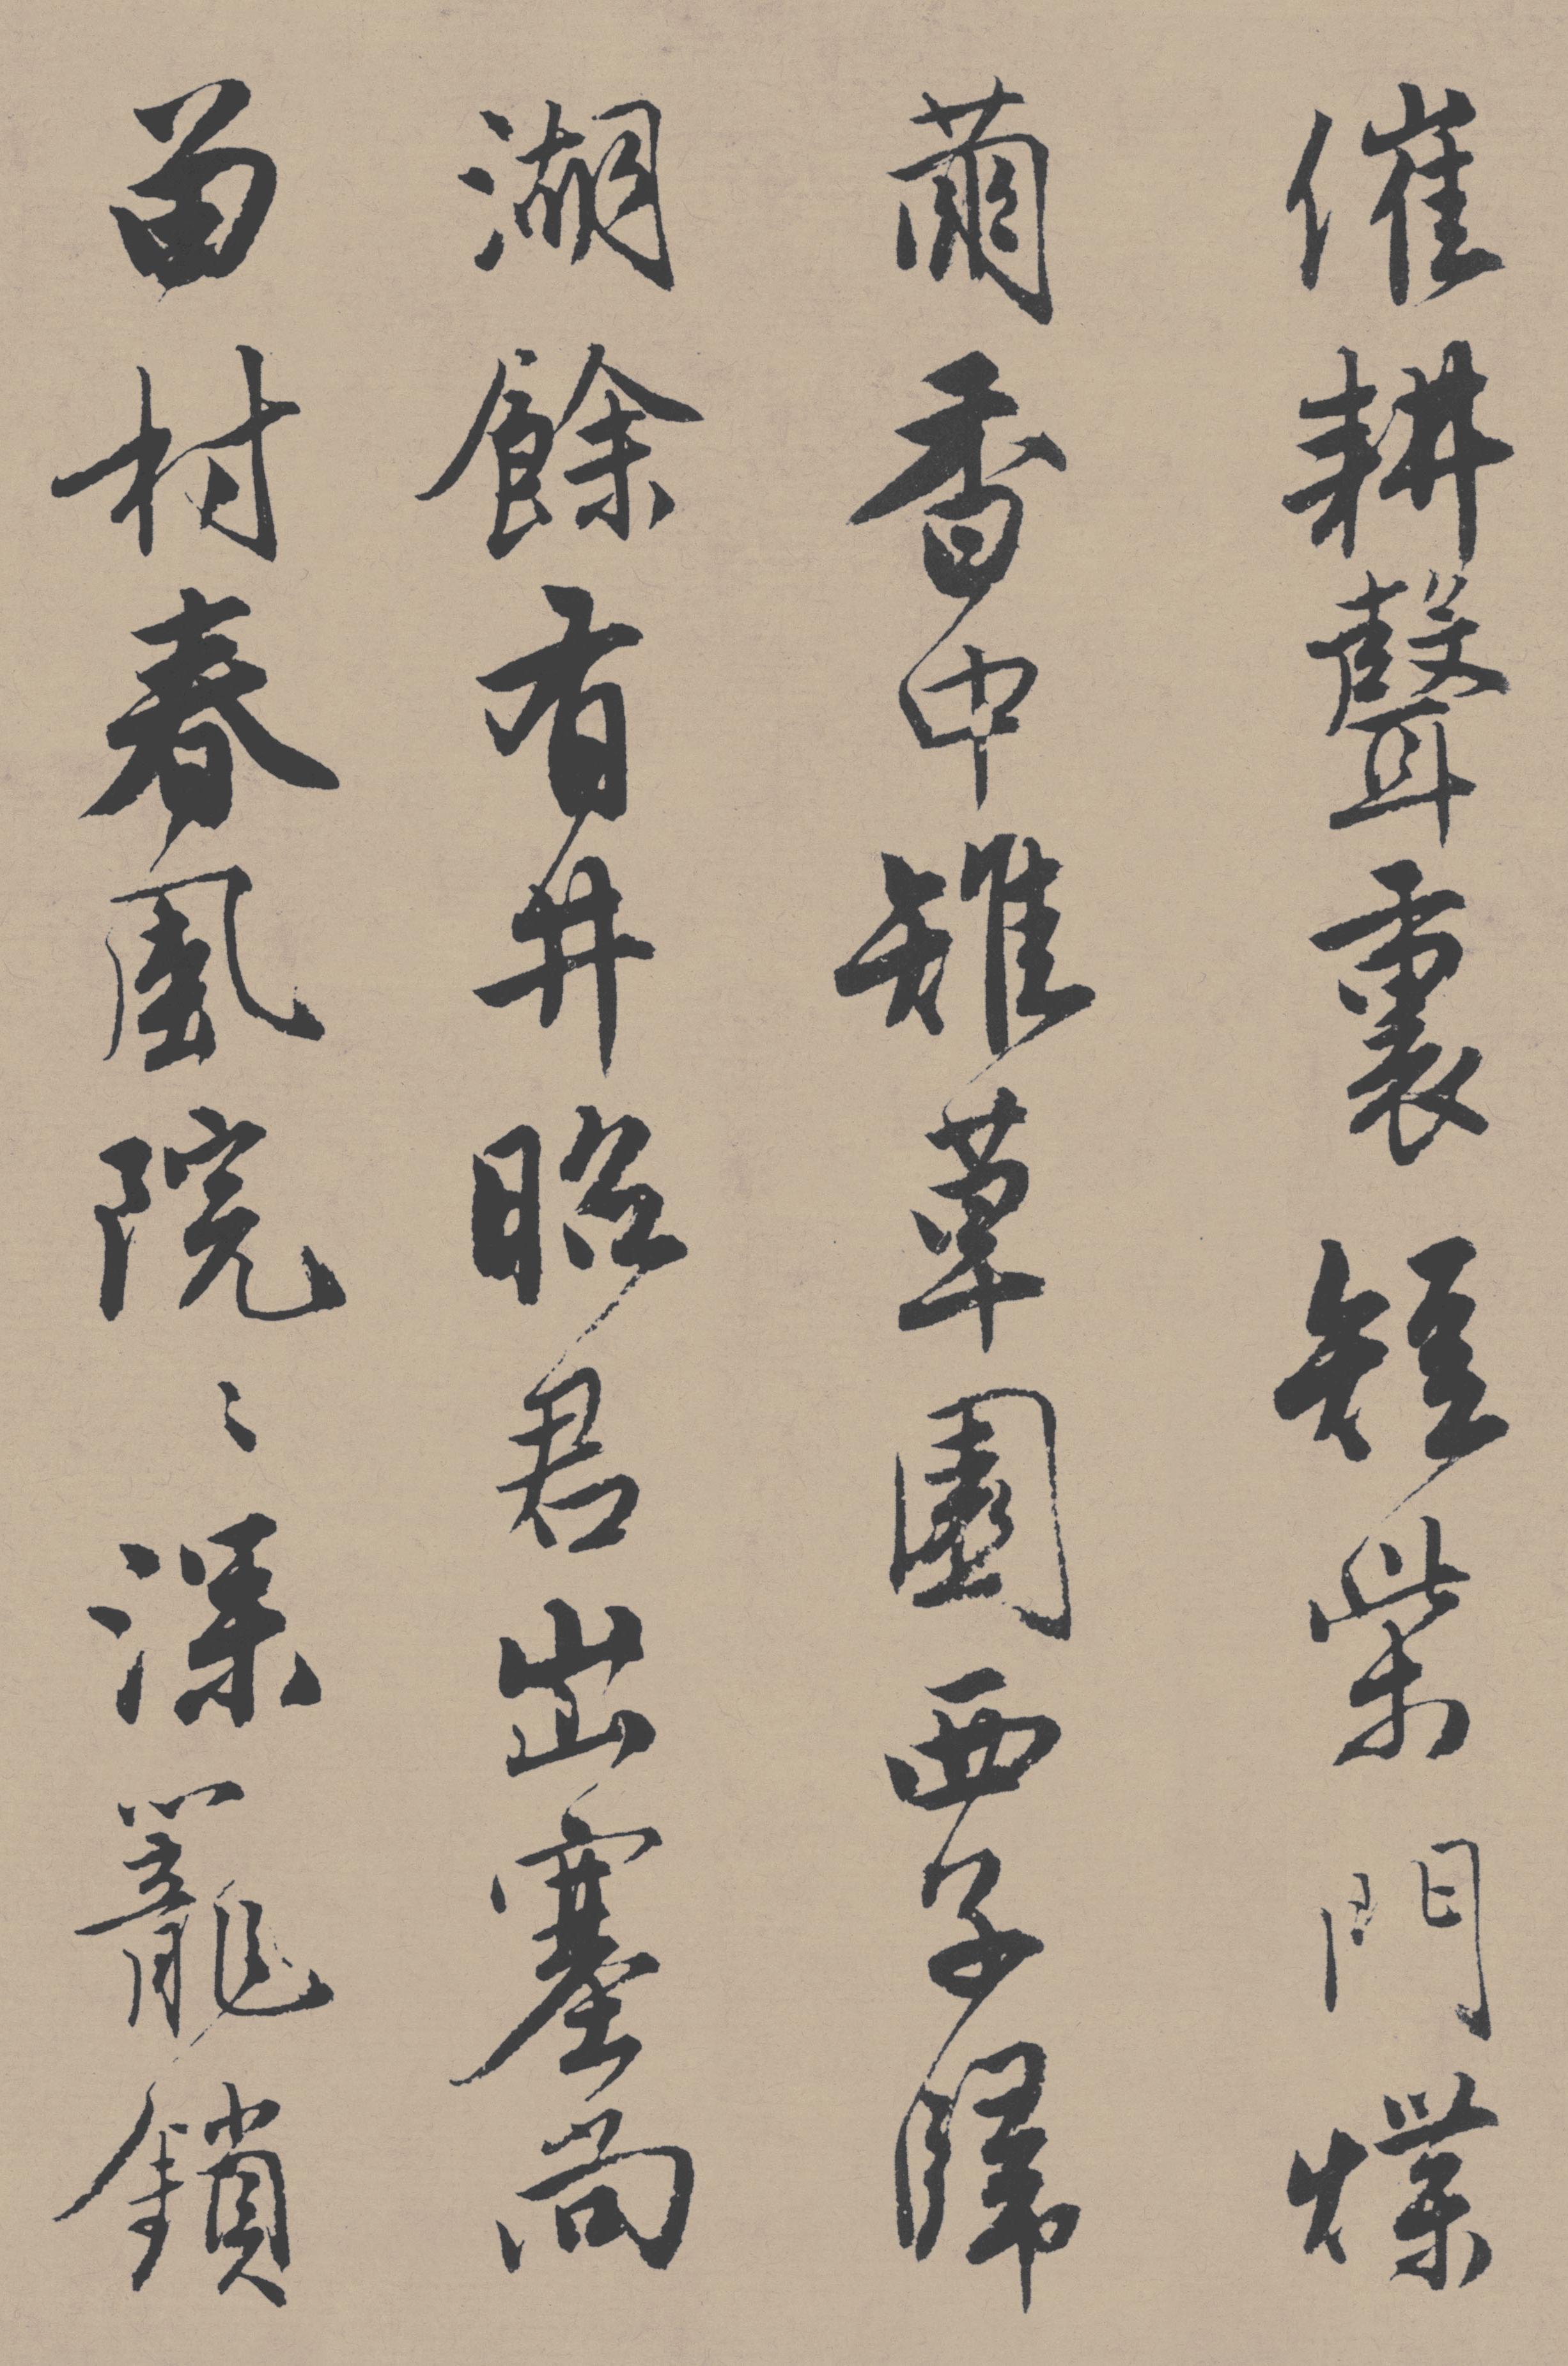 催耕聲裏短柴門煠
繭香中雉草園西子歸
湖餘有井昭君出塞尚
留村春風院〻深籠鎖